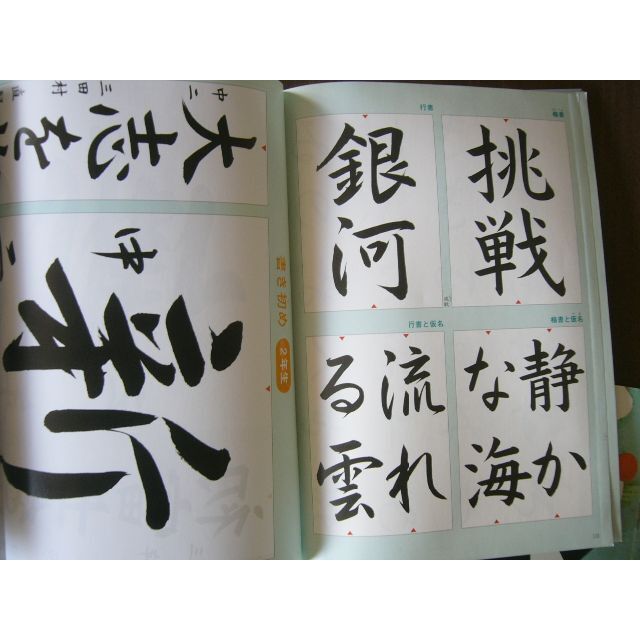 楷書
挑戦
行書
銀河
楷書と仮名
静か
な海
行書と仮名
流れ
る雲
書き初め 2年生
大志を
中二 三田村
新
中